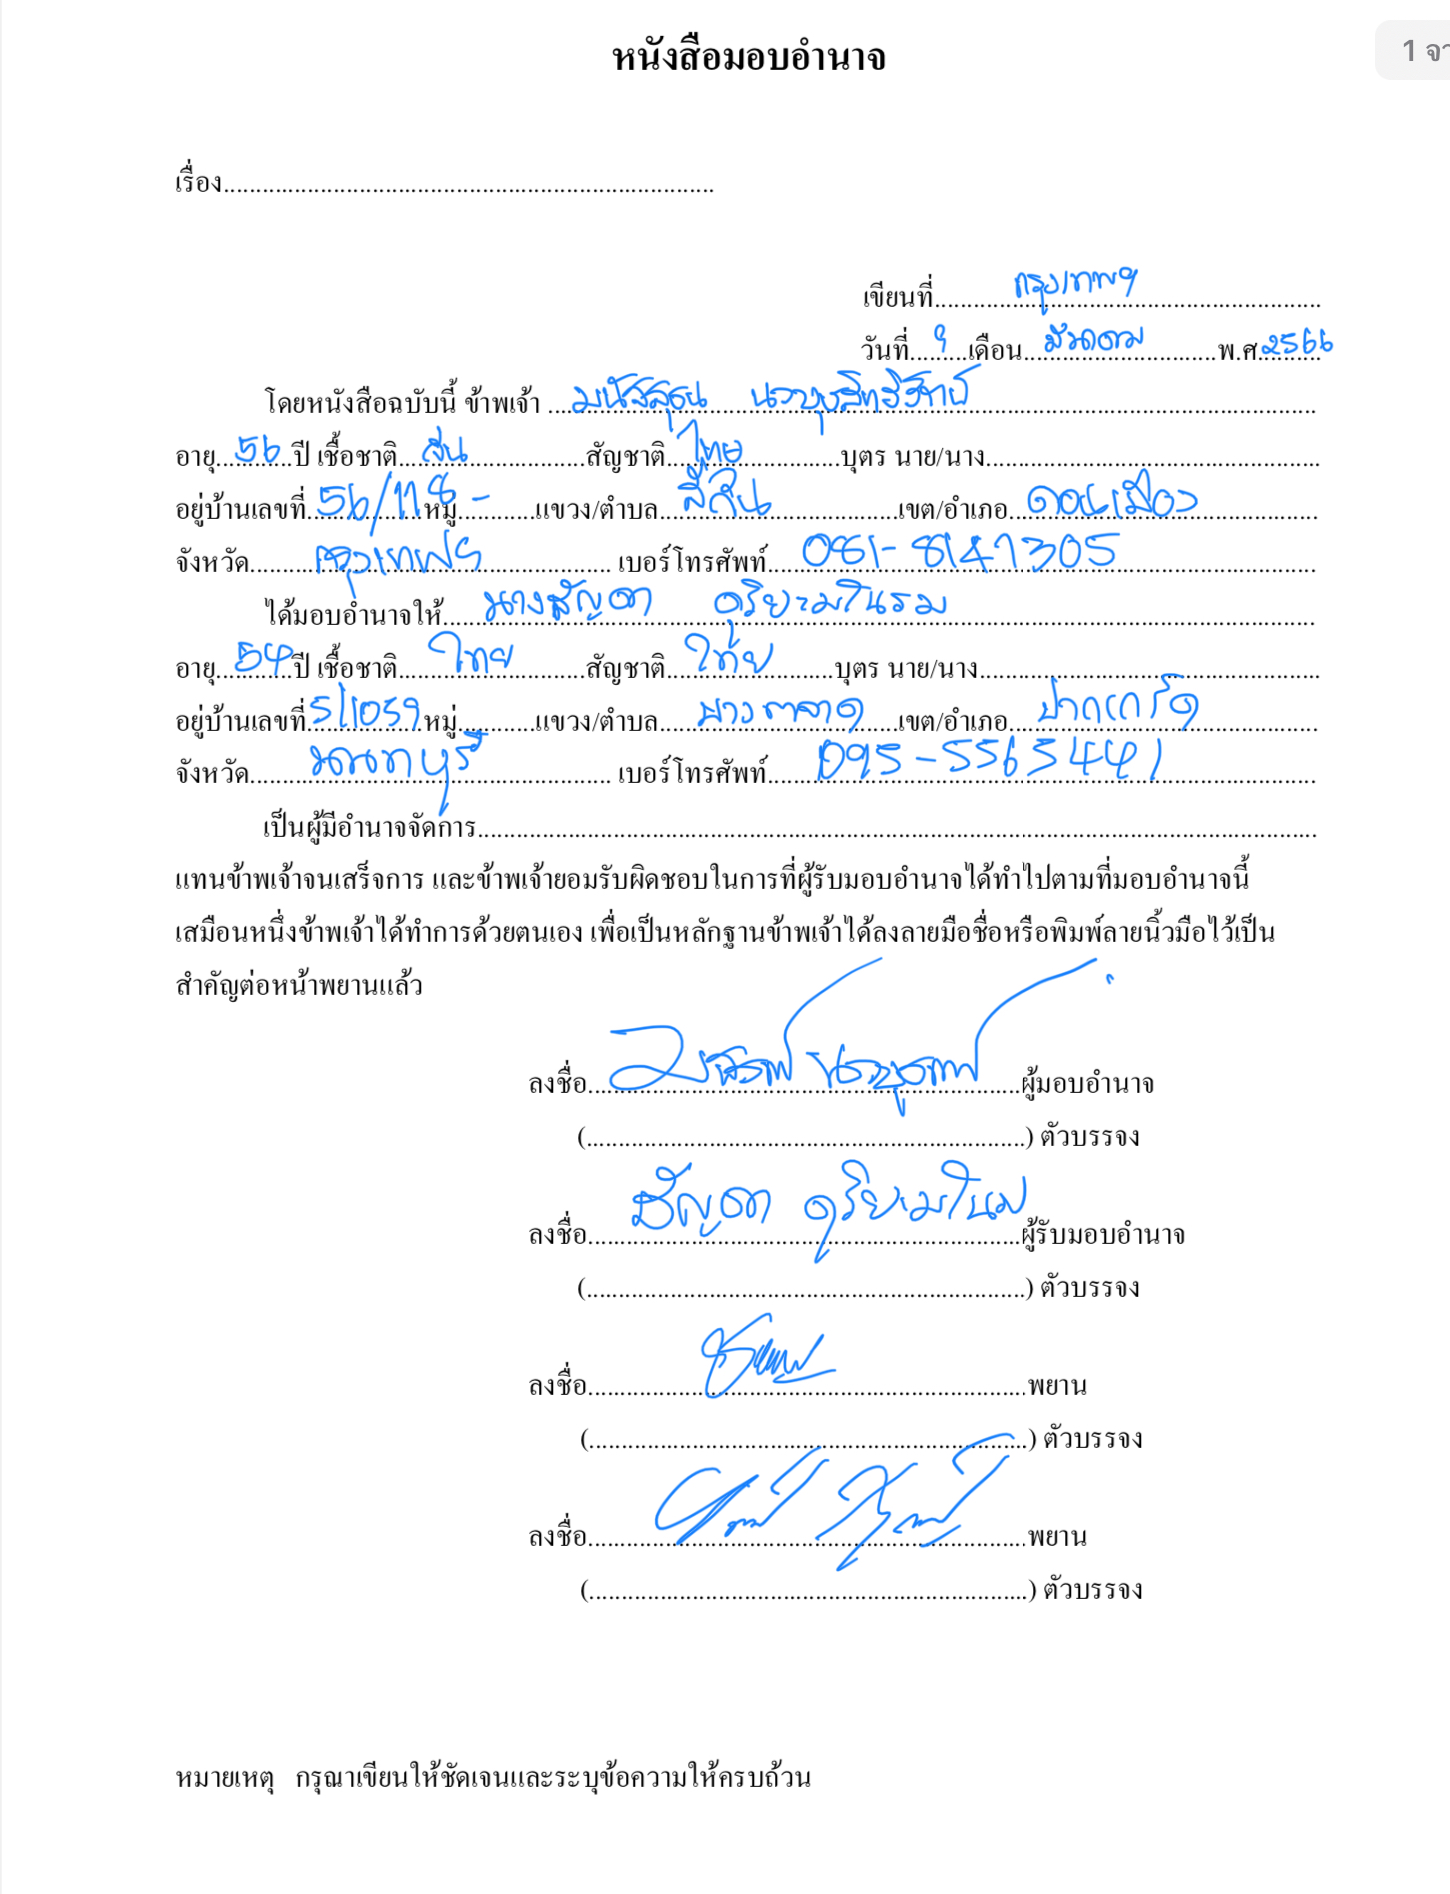 1 จา
หนังสือมอบอำนาจ
เรื่อง...........................................................................
เขียนที่.......กรุงเทพฯ.......
วันที่...9...เดือน...มีนาคม...พ.ศ.2566
โดยหนังสือฉบับนี้ ข้าพเจ้า ..............................
อายุ...56...ปี เชื้อชาติ...จีน...สัญชาติ...ไทย...บุตร นาย/นาง..............................
อยู่บ้านเลขที่...56/118...หมู่...-...แขวง/ตำบล...สีกัน...เขต/อำเภอ...ดอนเมือง...
จังหวัด...กรุงเทพฯ... เบอร์โทรศัพท์...081-8147305...
ได้มอบอำนาจให้...นางสัญญา...
อายุ...54...ปี เชื้อชาติ...ไทย...สัญชาติ...ไทย...บุตร นาย/นาง..............................
อยู่บ้านเลขที่...51/1059...หมู่............แขวง/ตำบล...บางตลาด...เขต/อำเภอ...ปากเกร็ด...
จังหวัด...นนทบุรี... เบอร์โทรศัพท์...095-5565441...
เป็นผู้มีอำนาจจัดการ............................................................
แทนข้าพเจ้าจนเสร็จการ และข้าพเจ้ายอมรับผิดชอบในการที่ผู้รับมอบอำนาจได้ทำไปตามที่มอบอำนาจนี้
เสมือนหนึ่งข้าพเจ้าได้ทำการด้วยตนเอง เพื่อเป็นหลักฐานข้าพเจ้าได้ลงลายมือชื่อหรือพิมพ์ลายนิ้วมือไว้เป็น
สำคัญต่อหน้าพยานแล้ว
ลงชื่อ..............................ผู้มอบอำนาจ
(............................................................) ตัวบรรจง
ลงชื่อ..............................ผู้รับมอบอำนาจ
(............................................................) ตัวบรรจง
ลงชื่อ..............................พยาน
(............................................................) ตัวบรรจง
ลงชื่อ..............................พยาน
(............................................................) ตัวบรรจง
หมายเหตุ กรุณาเขียนให้ชัดเจนและระบุข้อความให้ครบถ้วน